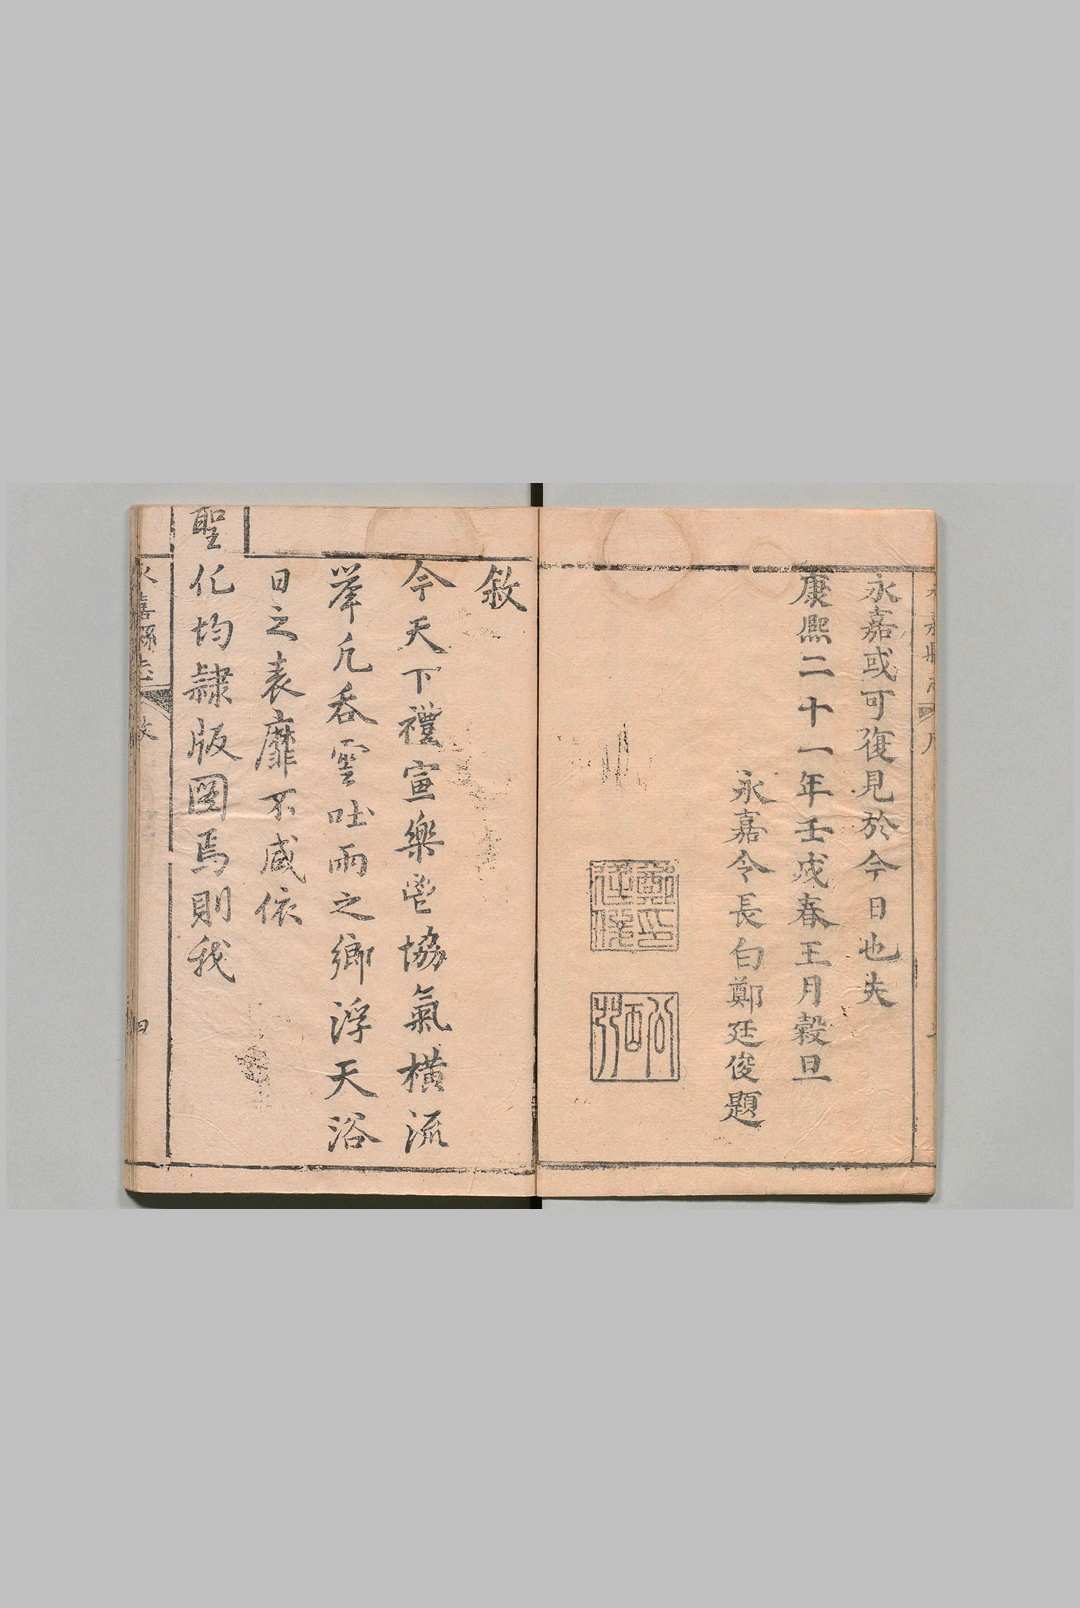 永嘉或可復見於今日也夫
康熙二十一年壬戌春王月穀旦
永嘉令長白鄭廷俊題
鄭廷俊印
敘
今天下禮宣樂鬯協氣橫流
举凡吞雲吐雨之鄉浮天浴
日之表靡不咸依
聖化均隷版圖焉則我
永嘉縣志
敘
四